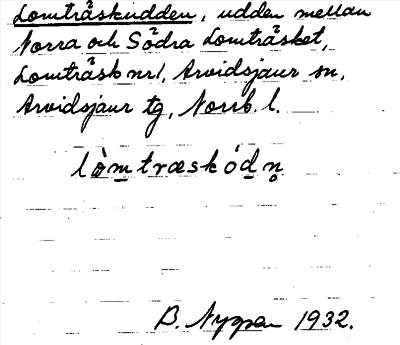 Lomträskudden, udden mellan
Norra och Södra Lomträsket,
Lomträsk nr 1, Arvidsjaur sn,
Arvidsjaur tg, Norrb. l.
lòm̲træskód̲n̥
B. Nygren 1932.